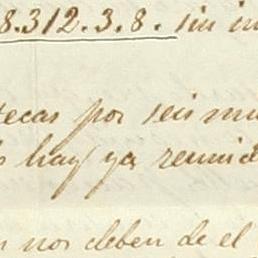 8.312.3.8. sin in
tecas por seis mi
hay ya reunid
nos deben de el